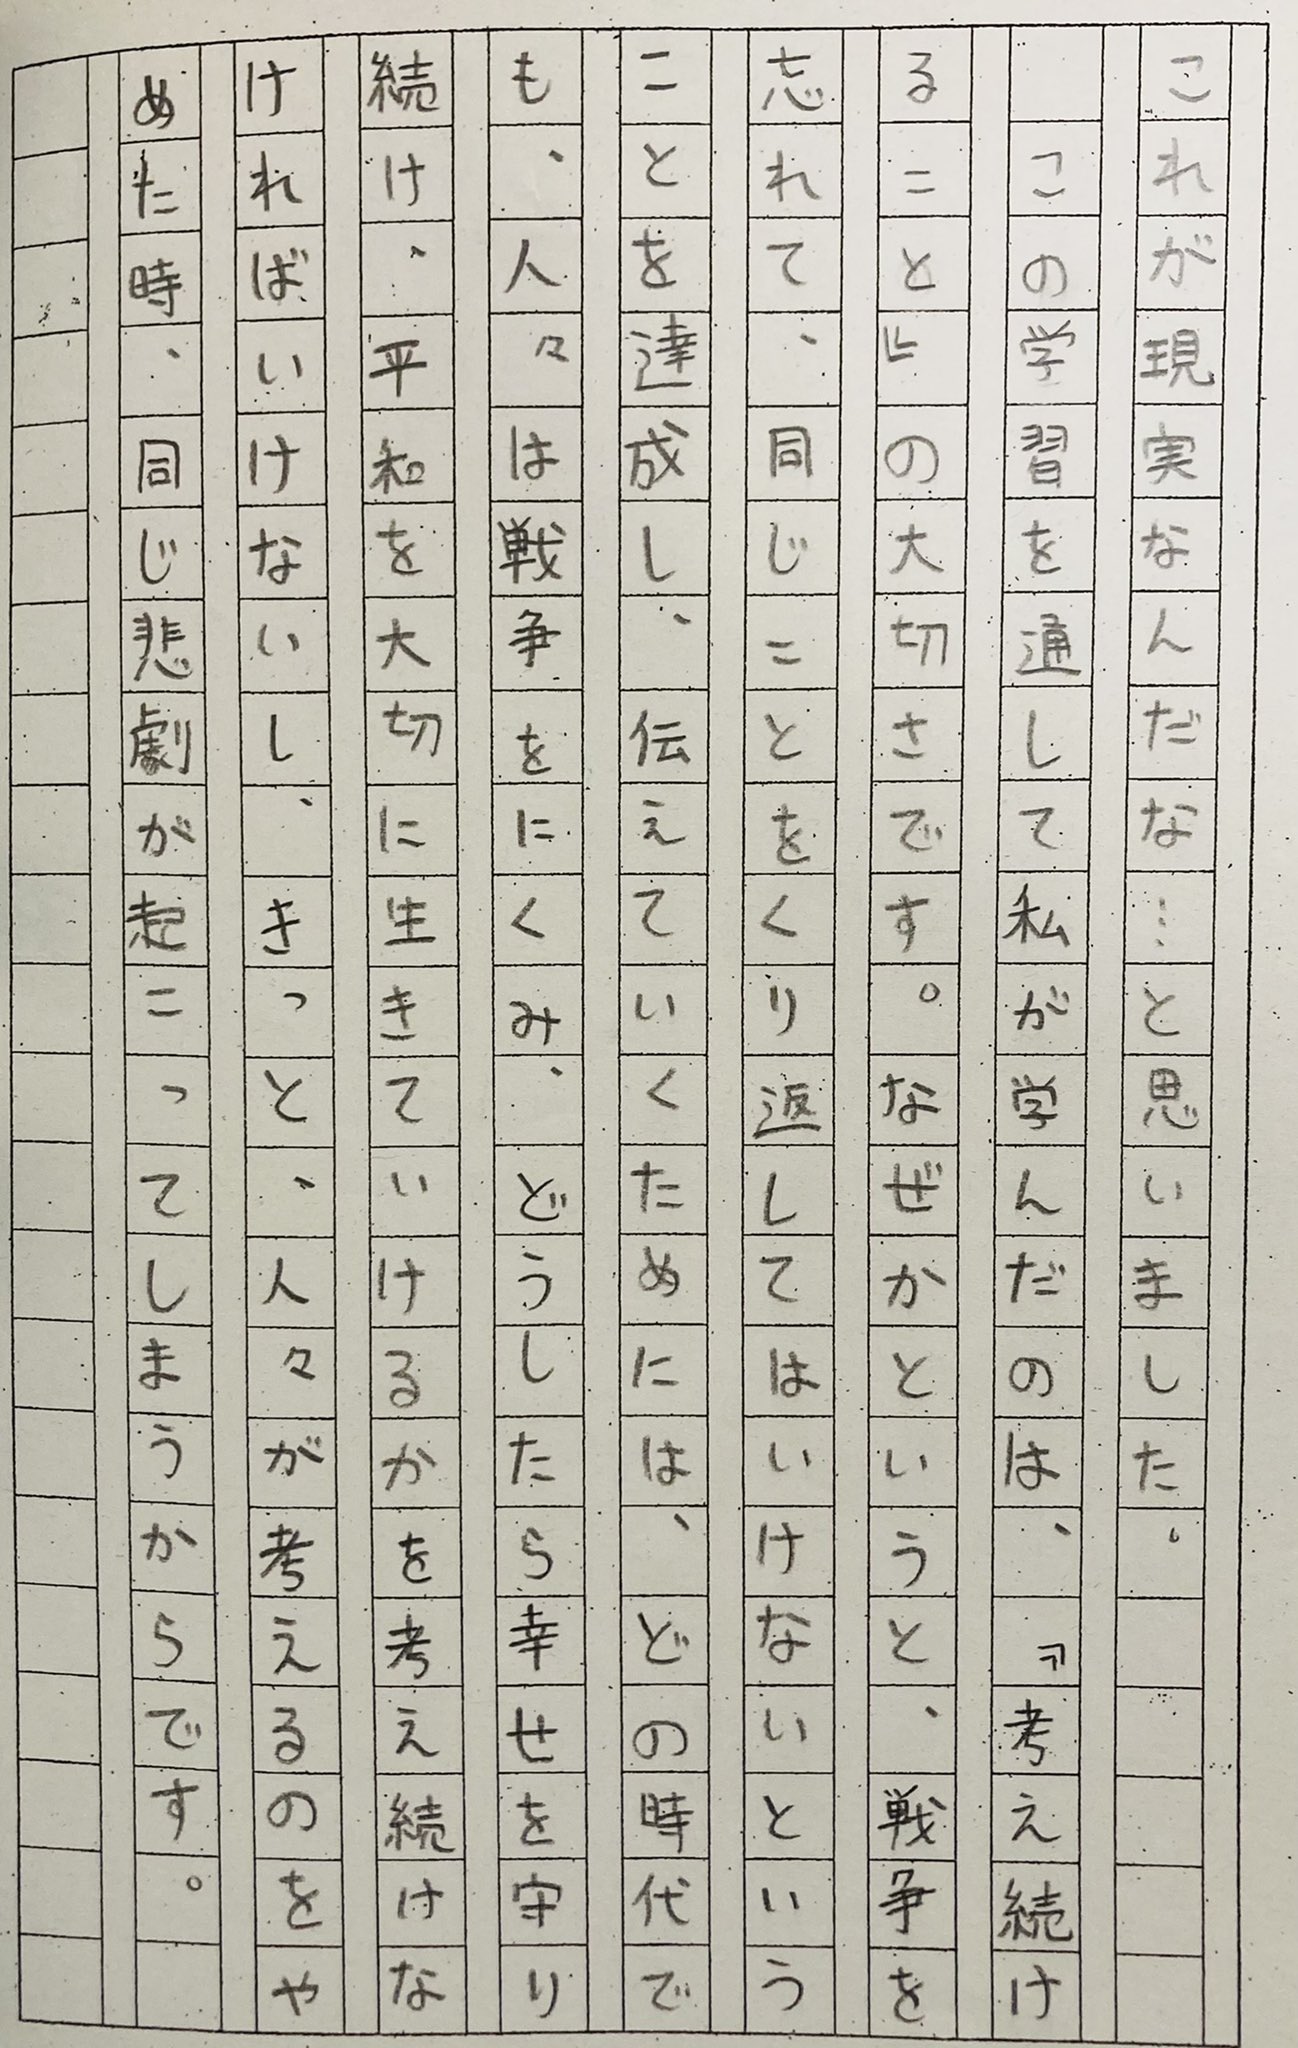 これが現実なんだな…と思いました。
この学習を通して私が学んだのは、『考え続け
ること』の大切さです。なぜかというと、戦争を
忘れて、同じことをくり返してはいけないという
ことを達成し、伝えていくためには、どの時代で
も、人々は戦争をにくみ、どうしたら幸せを守り
続け、平和を大切に生きていけるかを考え続けな
ければいけないし、きっと、人々が考えるのをや
めた時、同じ悲劇が起こってしまうからです。